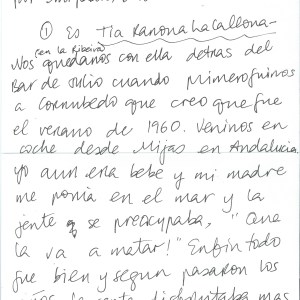 ① Es Tía Ramona La Callona-
(en la Ribeira)
Nos quedamos con ella detras del
Bar de Julio cuando primero fuimos
a Corrubedo que creo que fue
el verano de 1960. Venimos en
coche desde Mijas en Andalucia.
Yo aun era bebe y mi madre
me ponia en el mar y la
jente se preocupaba, "Que
la va a matar!" Enfin todo
fue bien y segun pasaron los
la jente disfrutaba mas